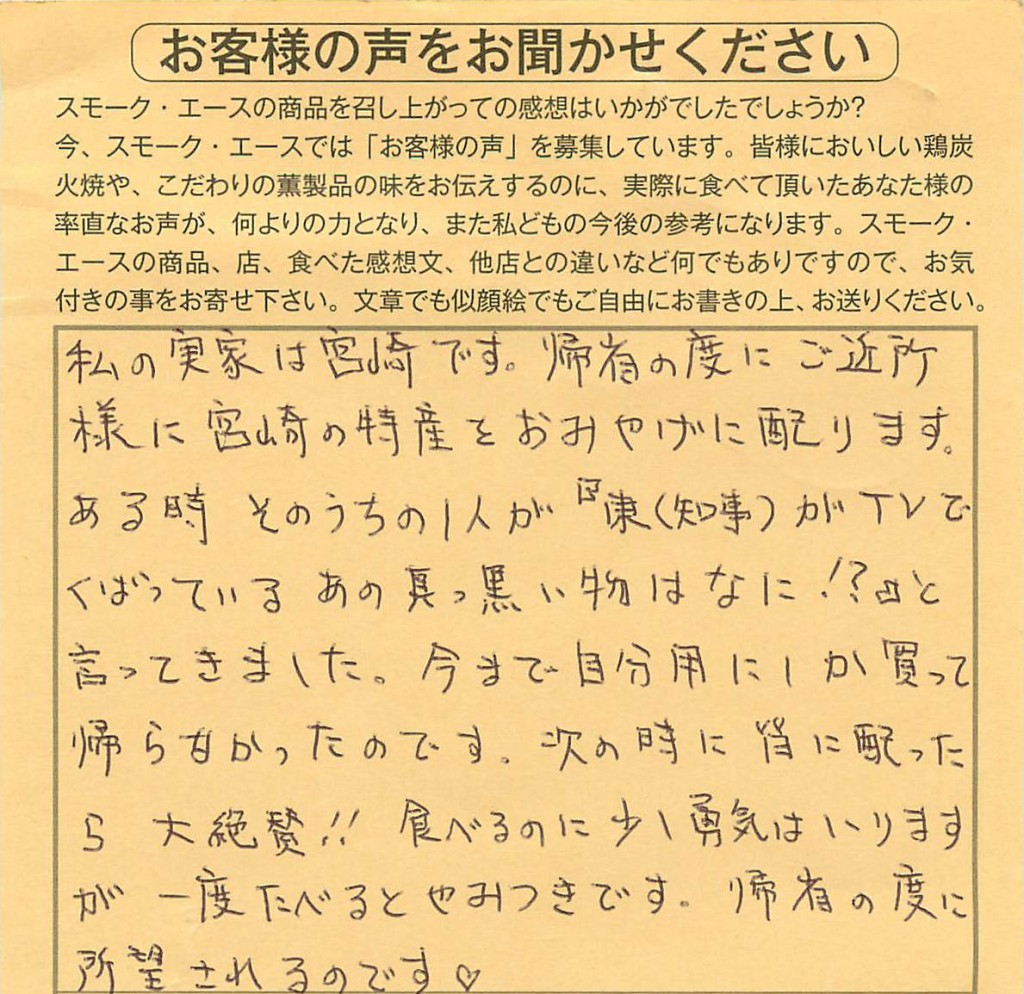 お客様の声をお聞かせください
スモーク・エースの商品を召し上がっての感想はいかがでしたでしょうか?
今、スモーク・エースでは「お客様の声」を募集しています。皆様においしい鶏炭
火焼や、こだわりの薫製品の味をお伝えするのに、実際に食べて頂いたあなた様の
率直なお声が、何よりの力となり、また私どもの今後の参考になります。スモーク・
エースの商品、店、食べた感想文、他店との違いなど何でもありですので、お気
付きの事をお寄せ下さい。文章でも似顔絵でもご自由にお書きの上、お送りください。
私の実家は宮崎です。帰省の度にご近所
様に宮崎の特産をおみやげに配ります。
ある時 そのうちの1人が『東(知事)がTVで
くばっている あの真っ黒い物はなに!?』と
言ってきました。今まで自分用にしか買って
帰らなかったのです。次の時に皆に配った
ら 大絶賛!! 食べるのに少し勇気はいります
が 一度たべるとやみつきです。帰省の度に
所望されるのです♡